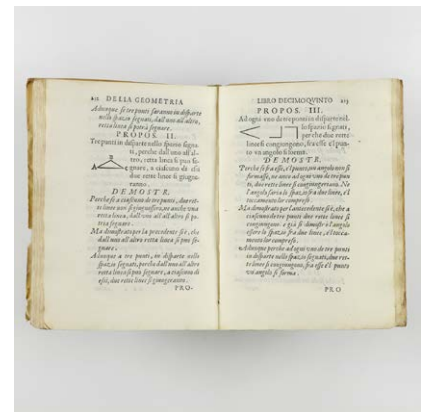 212 DELLA GEOMETRIA
Adunque se tre punti saranno in disparte
nello spazio segnati, dall'uno all'altro,
retta linea si potrà segnare.
PROPOS. II.
Tre punti in disparte nello spazio segna
ti, perche dall'uno all'al-
tro, rette linee si puo se-
gnare, a ciascuno di essi
due rette linee si giugne-
ranno.
B
A C
DEMOSTR.
Perche se a ciascuno de tre punti, due ret-
te linee non si giugnessero, ne anche una
retta linea, dall'uno all'altro si po-
tria segnare.
Ma demostrato per la precedente si è, che
dall'uno all'altro retta linea si puo se-
gnare.
Adunque a tre punti, in disparte nello
spazio segnati, perche dall'uno all'altro
retta linea si puo segnare, a ciascuno di
essi, due rette linee si giugneranno.
PRO-
LIBRO DECIMOQVINTO 213
PROPOS. III.
Ad ogni uno de tre punti in disparte nel
lo spazio segnati,
perche due rette
linee si congiungono, fra esse e'l pun-
to un angolo si forma.
DEMOSTR.
Perche se fra esse, e'l punto, un angolo non si
formasse, ne anco ad ogni uno de tre pun
ti, due rette linee si congiungeriano. Ne
l'angolo saria lo spazio fra due linee, e'l
toccamento lor compreso.
Ma demostrato per l'antecedente si è, che a
ciascuno de tre punti due rette linee si
congiungono, e già si dimostrò l'angolo
essere lo spazio fra due linee, e'l tocca-
mento lor compreso.
Adunque perche ad ogni uno de tre punti
in disparte nello spazio segnati, due ret-
te linee si congiungono, fra esse e'l punto
un'angolo si forma.
PRO